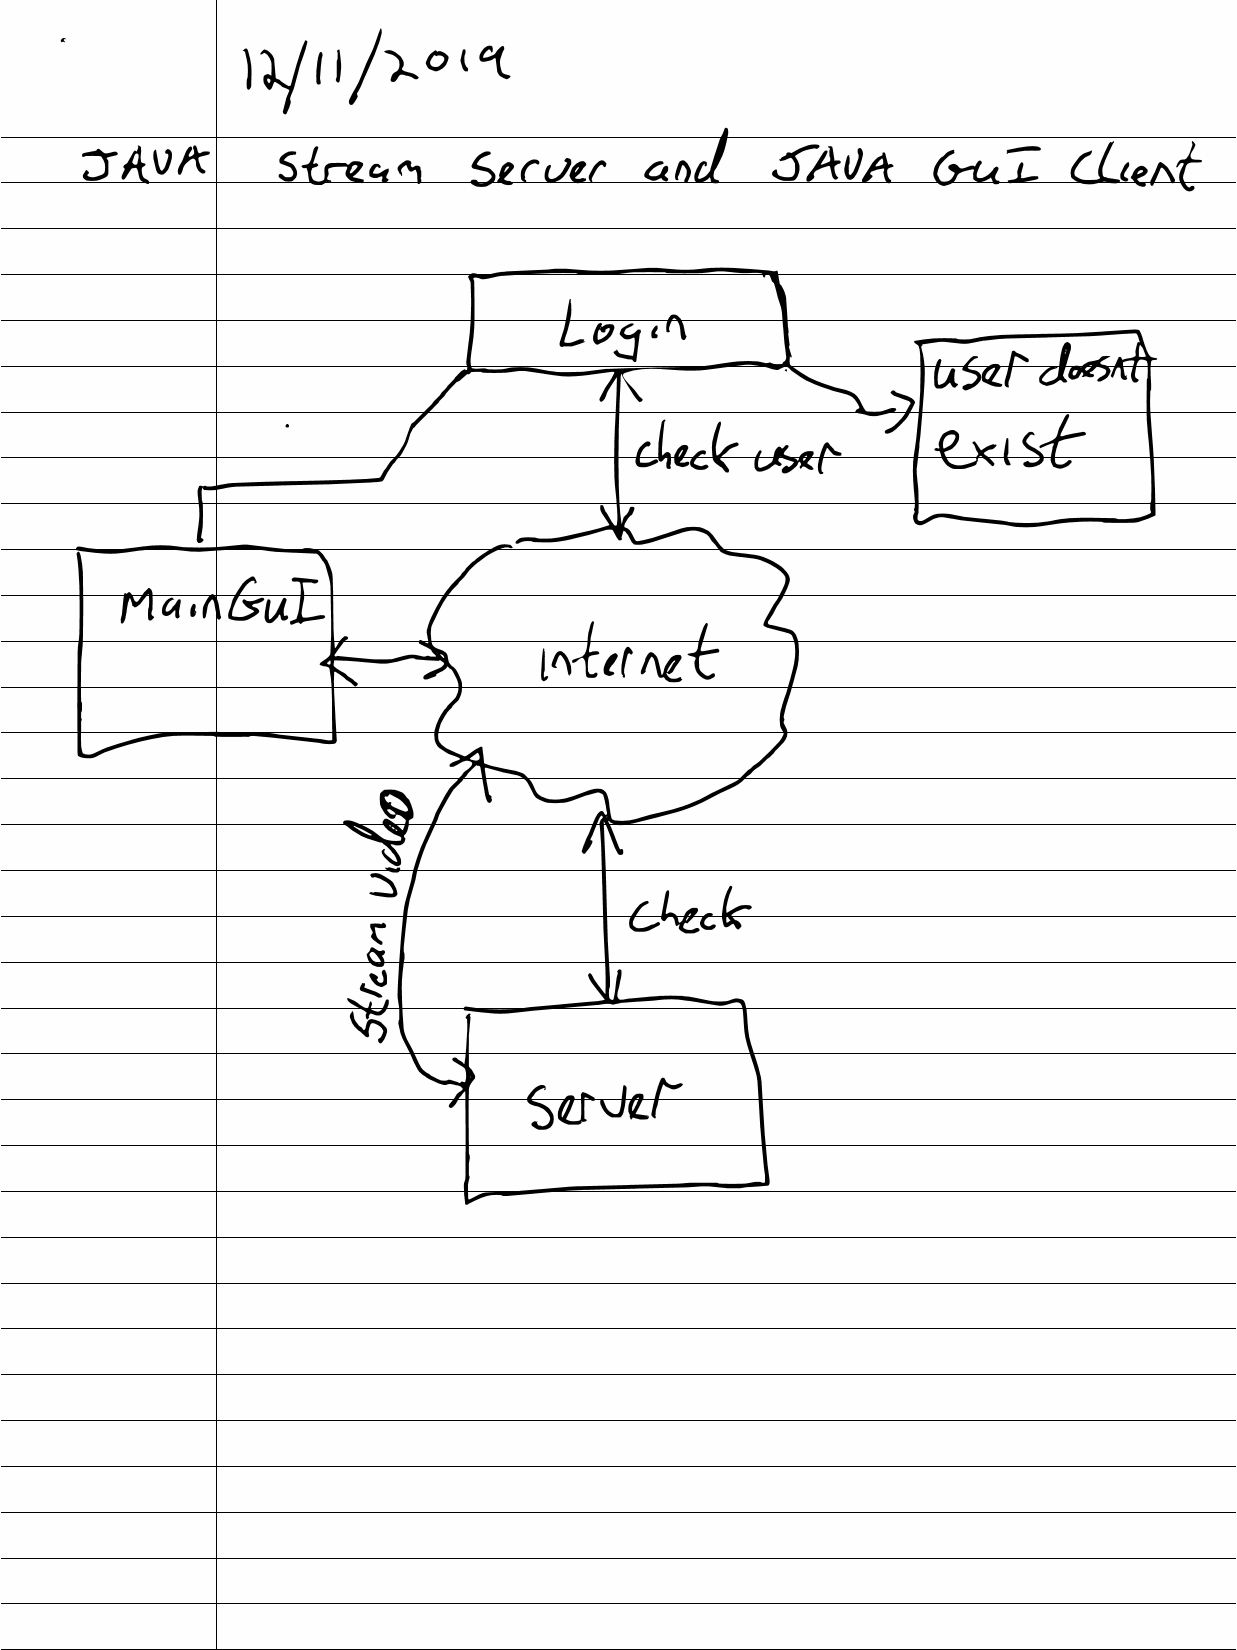 12/11/2019
JAVA stream server and JAVA GUI Client
Login
user doesnt
exist
check user
MainGUI
internet
stream video
check
server